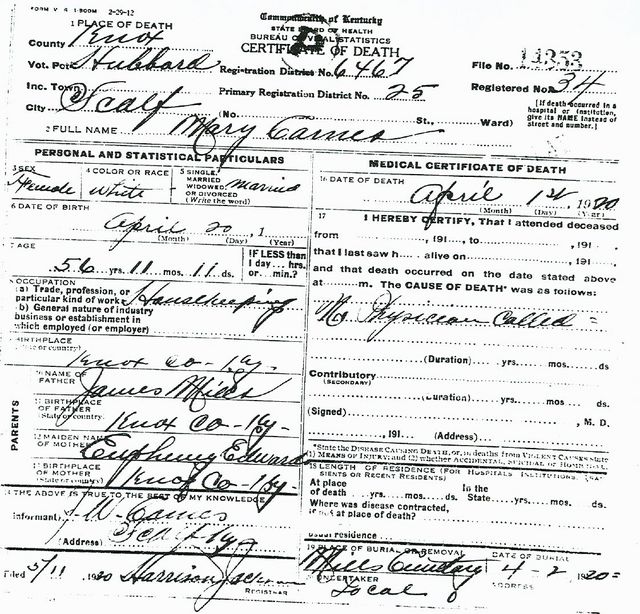 FORM V. S. 1-500M 2-29-12
Commonwealth of Kentucky
STATE BOARD OF HEALTH
BUREAU OF VITAL STATISTICS
CERTIFICATE OF DEATH
1 PLACE OF DEATH
County Knox
Vot. Pct Hubbard Registration District No. 6467 File No. 14353
Inc. Town Primary Registration District No. 25 Registered No. 34
City Scalf (No. St., Ward)
[If death occurred in a hospital or institution, give its NAME instead of street and number.]
2 FULL NAME Mary Carnes
PERSONAL AND STATISTICAL PARTICULARS
3 SEX Female
4 COLOR OR RACE White
5 SINGLE, MARRIED WIDOWED OR DIVORCED (Write the word) Married
6 DATE OF BIRTH
April 20, 1
(Month) (Day) (Year)
7 AGE
56 yrs. 11 mos. 11 ds.
IF LESS than 1 day... hrs. or... min.?
8 OCCUPATION
(a) Trade, profession, or particular kind of work Housekeeping
(b) General nature of industry business or establishment in which employed (or employer)
9 BIRTHPLACE
(State or country)
Knox Co - Ky -
PARENTS
10 NAME OF FATHER James Mills
11 BIRTHPLACE OF FATHER (State or country) Knox Co - Ky -
12 MAIDEN NAME OF MOTHER Edwards
13 BIRTHPLACE OF MOTHER (State or country) Knox Co - Ky
14 THE ABOVE IS TRUE TO THE BEST OF MY KNOWLEDGE
(Informant) Carnes
(Address) Scalf Ky
Filed 5/11 1920 Harrison
REGISTRAR
MEDICAL CERTIFICATE OF DEATH
16 DATE OF DEATH
April 1st, 1920
(Month) (Day) (Year)
17 I HEREBY CERTIFY, That I attended deceased
from , 191 , to , 191
that I last saw h alive on , 191
and that death occurred on the date stated above
at m. The CAUSE OF DEATH* was as follows:
No Physician Called =
(Duration) yrs. mos. ds.
Contributory
(SECONDARY)
(Duration) yrs. mos. ds.
(Signed) , M. D.
, 191 (Address)
*State the DISEASE CAUSING DEATH, or, in deaths from VIOLENT CAUSES state
(1) MEANS OF INJURY; and (2) whether ACCIDENTAL, SUICIDAL or HOMICIDAL.
18 LENGTH OF RESIDENCE (FOR HOSPITALS, INSTITUTIONS, TRANSIENTS OR RECENT RESIDENTS)
At place of death yrs. mos. ds. In the State yrs. mos. ds.
Where was disease contracted,
if not at place of death?
usual residence
19 PLACE OF BURIAL OR REMOVAL DATE OF BURIAL
Mills Cemetary 4-2-1920=
UNDERTAKER ADDRESS
Local